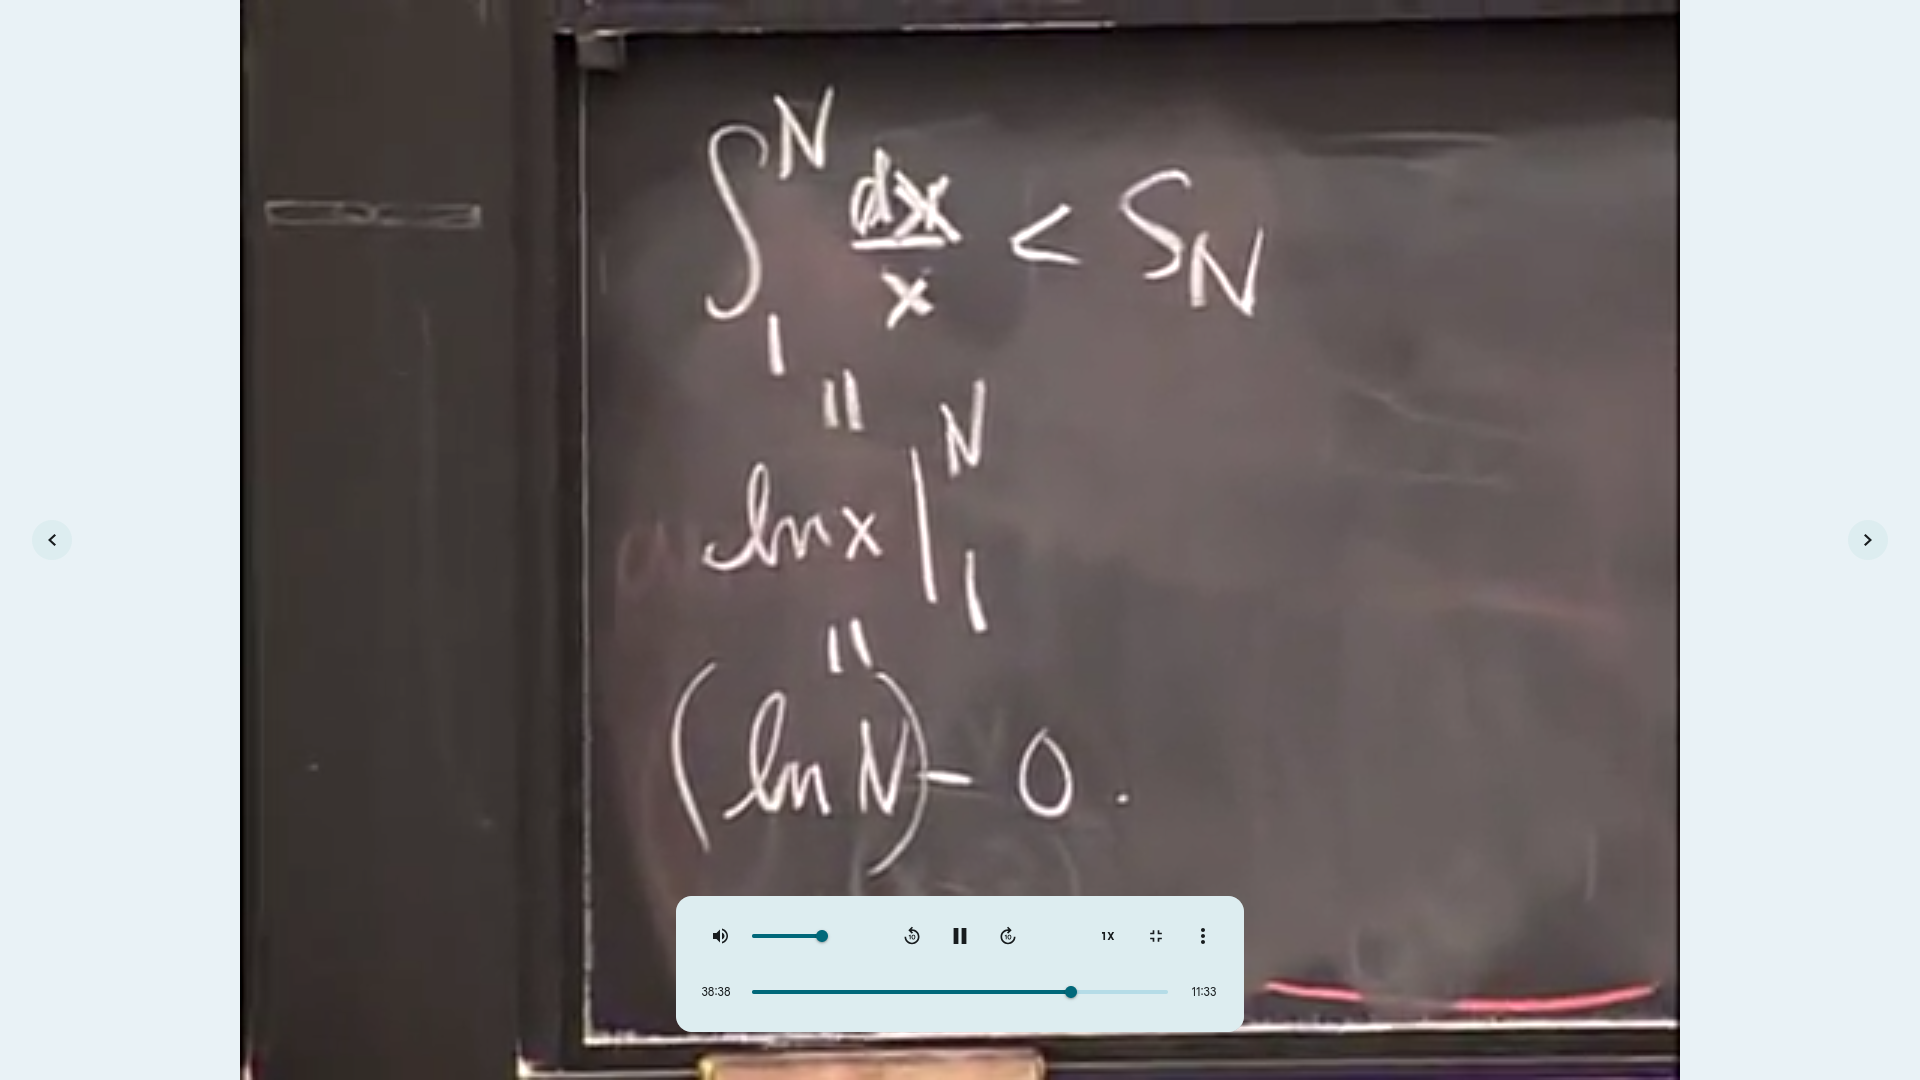 ∫₁ᴺ dx/x < S_N
||
ln x |₁ᴺ
||
(ln N) - 0 .
10
10
1X
38:38
11:33